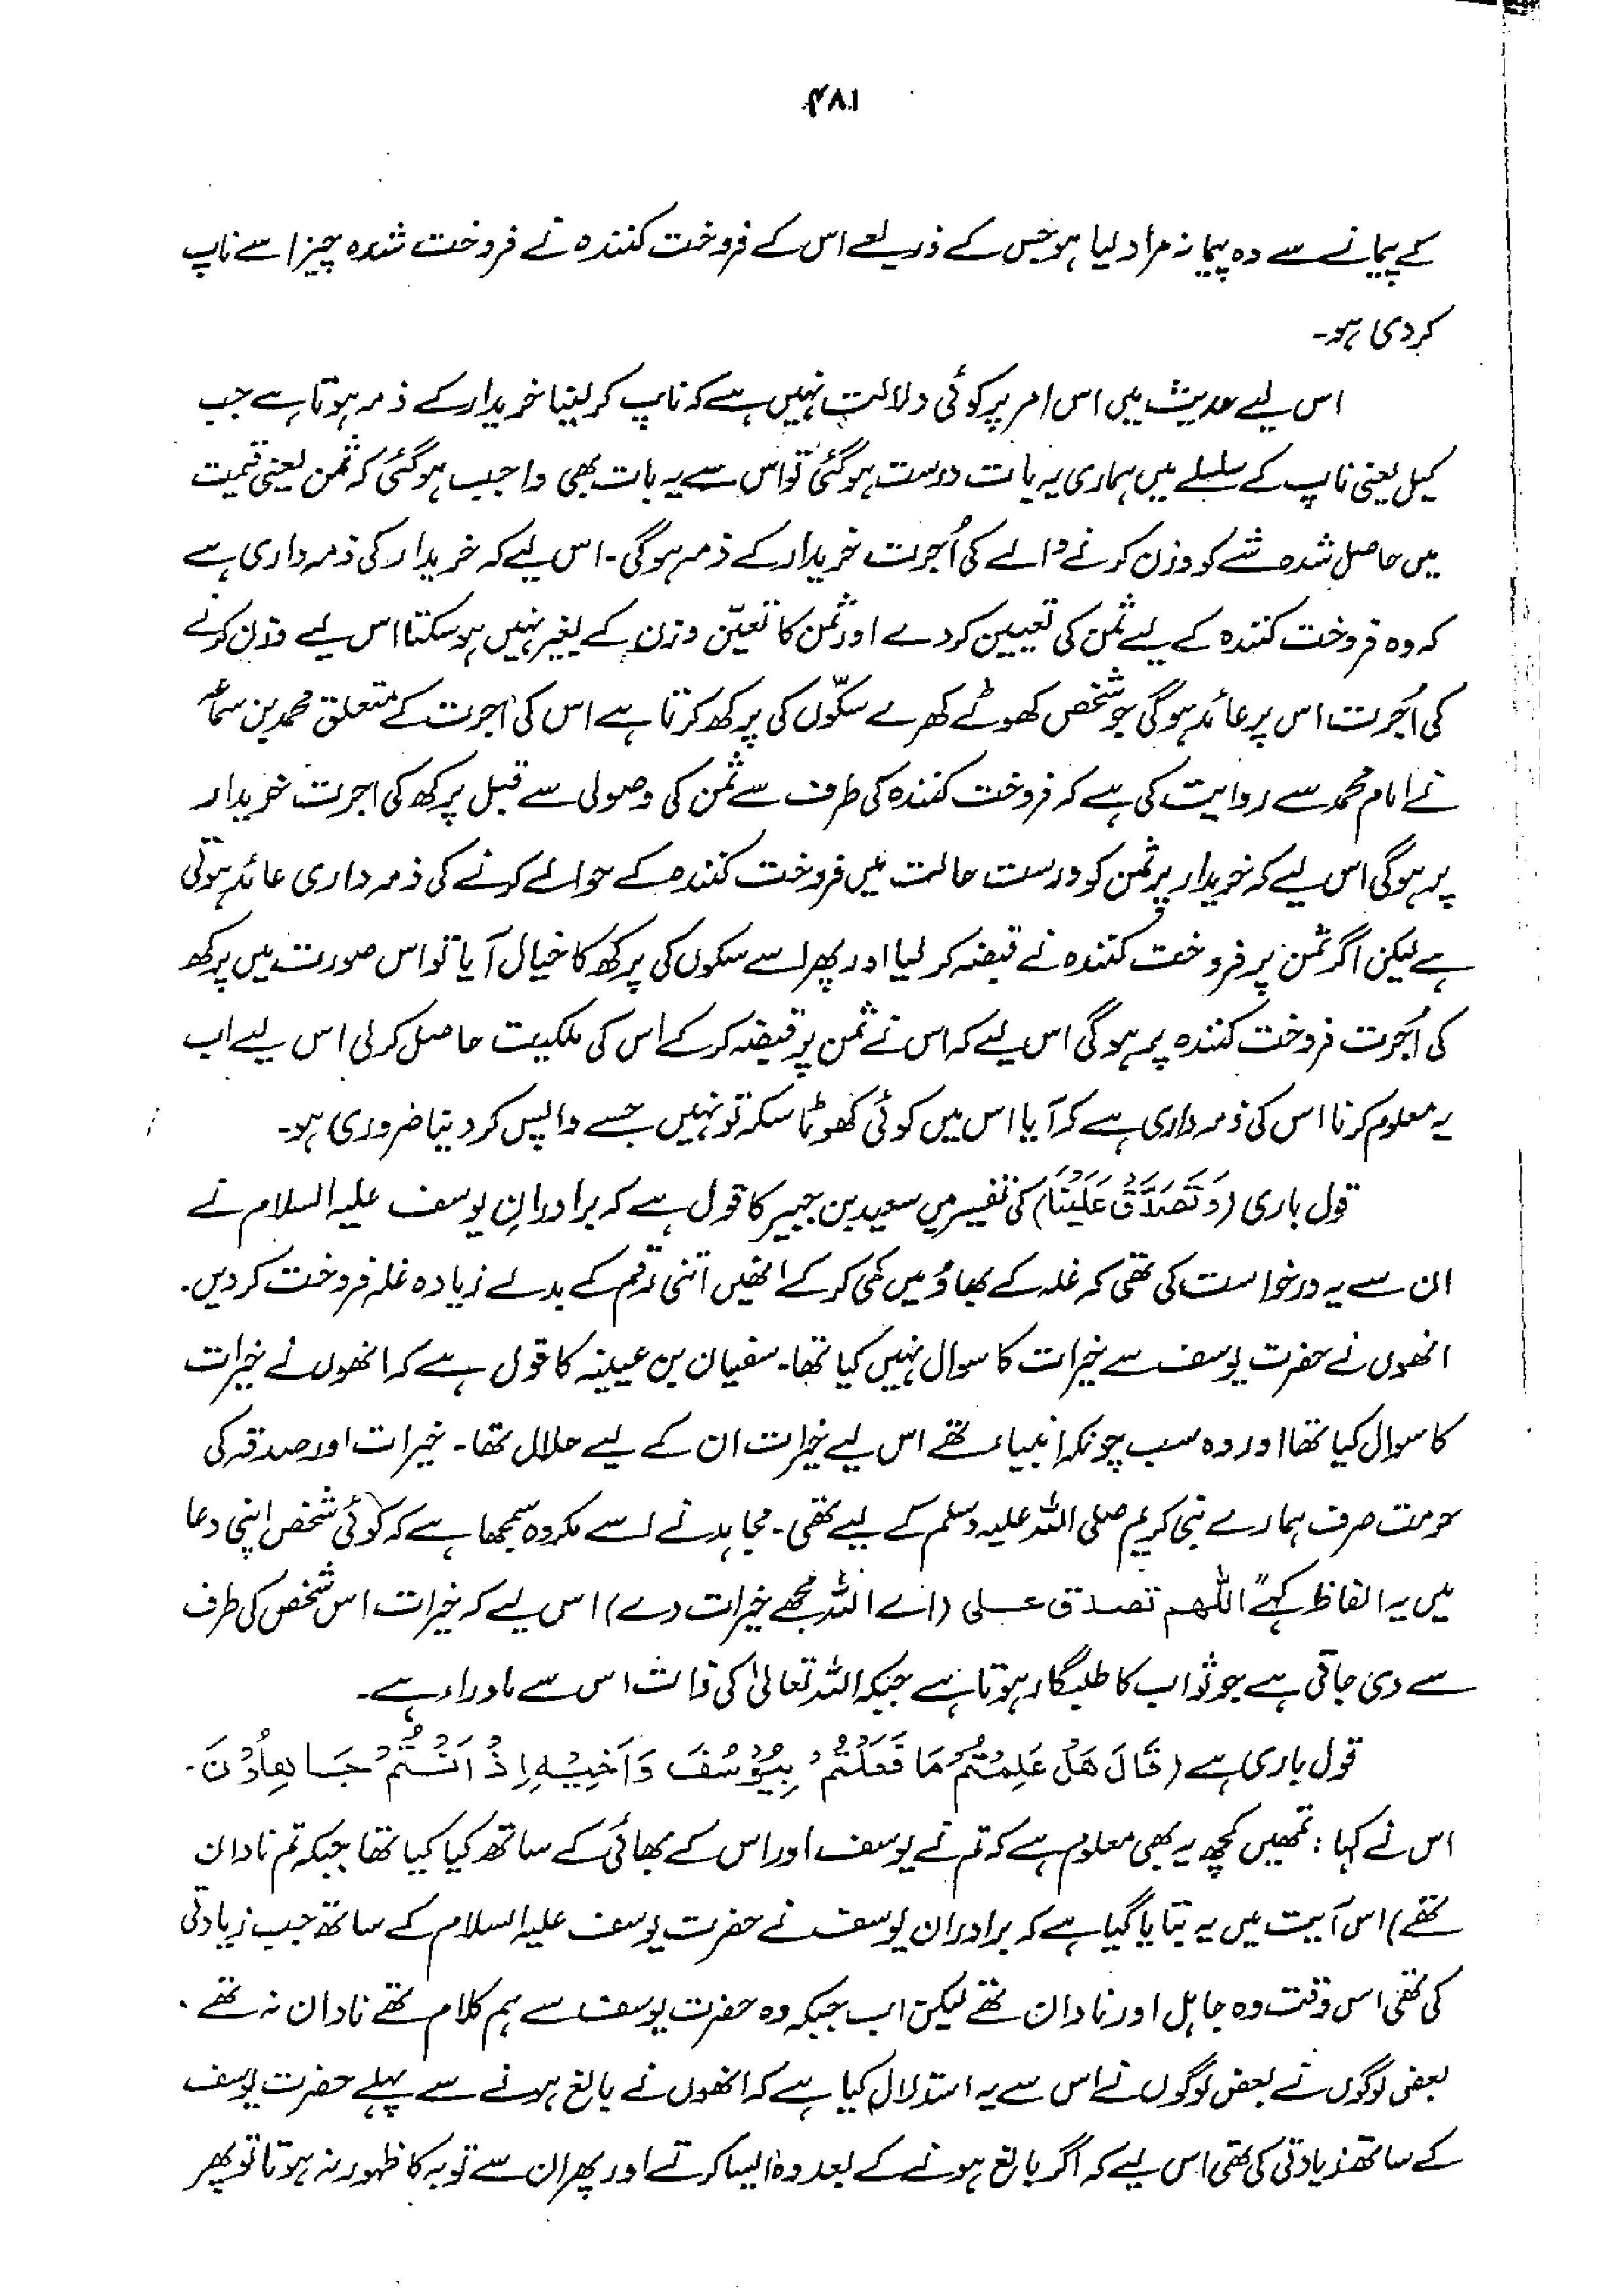 ۴۸۱
کے پیمانے سے وہ پیمانہ مراد لیا ہو جس کے ذریعے اس کے فروخت کنندہ نے فروخت شدہ چیز اسے ناپ
کر دی ہو۔
اس لیے حدیث میں اس امر پر کوئی دلالت نہیں ہے کہ ناپ کر لینا خریدار کے ذمہ ہوتا ہے جب
کیل یعنی ناپ کے سلسلے میں ہماری یہ بات درست ہو گئی تو اس سے یہ بات بھی واجب ہو گئی کہ ثمن یعنی قیمت
میں حاصل شدہ شے کو وزن کرنے والے کی اُجرت خریدار کے ذمہ ہو گی۔ اس لیے کہ خریدار کی ذمہ داری ہے
کہ وہ فروخت کنندہ کے لیے ثمن کی تعیین کر دے اور ثمن کا تعیّن وزن کے بغیر نہیں ہو سکتا اس لیے وزن کرنے
کی اُجرت اس پر عائد ہو گی جو شخص کھوٹے کھرے سکّوں کی پرکھ کرتا ہے اس کی اجرت کے متعلق محمد بن سماعہ
نے امام محمد سے روایت کی ہے کہ فروخت کنندہ کی طرف سے ثمن کی وصولی سے قبل پرکھ کی اجرت خریدار
پر ہو گی اس لیے کہ خریدار پر ثمن کو درست حالت میں فروخت کنندہ کے حوالے کرنے کی ذمہ داری عائد ہوتی
ہے لیکن اگر ثمن پر فروخت کنندہ نے قبضہ کر لیا اور پھر اسے سکوں کی پرکھ کا خیال آیا تو اس صورت میں پرکھ
کی اُجرت فروخت کنندہ پر ہو گی اس لیے کہ اس نے ثمن پر قبضہ کر کے اس کی ملکیت حاصل کر لی اس لیے اب
یہ معلوم کرنا اس کی ذمہ داری ہے کہ آیا اس میں کوئی کھوٹا سکہ تو نہیں جسے واپس کر دینا ضروری ہو۔
قول باری (وَتَصَدَّقْ عَلَيْنَا) کی تفسیر میں سعید بن جبیر کا قول ہے کہ برادرانِ یوسف علیہ السلام نے
ان سے یہ درخواست کی تھی کہ غلہ کے بھاؤ میں کمی کر کے انھیں اتنی رقم کے بدلے زیادہ غلہ فروخت کر دیں۔
انھوں نے حضرت یوسف سے خیرات کا سوال نہیں کیا تھا۔ سفیان بن عیینہ کا قول ہے کہ انھوں نے خیرات
کا سوال کیا تھا اور وہ سب چونکہ انبیاء تھے اس لیے خیرات ان کے لیے حلال تھا۔ خیرات اور صدقہ کی
حرمت صرف ہمارے نبی کریم صلی اللہ علیہ وسلم کے لیے تھی۔ مجاہد نے اسے مکروہ سمجھا ہے کہ کوئی شخص اپنی دعا
میں یہ الفاظ کہے "اللھم تصدق علی (اے اللہ مجھے خیرات دے) اس لیے کہ خیرات اس شخص کی طرف
سے دی جاتی ہے جو ثواب کا طلبگار ہوتا ہے جبکہ اللہ تعالیٰ کی ذات اس سے ماوراء ہے۔
قول باری ہے (قَالَ هَلْ عَلِمْتُمْ مَا فَعَلْتُمْ بِيُوْسُفَ وَاَخِيْهِ اِذْ اَنْتُمْ جَاهِلُوْنَ۔
اس نے کہا: تمھیں کچھ یہ بھی معلوم ہے کہ تم نے یوسف اور اس کے بھائی کے ساتھ کیا کیا تھا جبکہ تم نادان
تھے) اس آیت میں یہ بتایا گیا ہے کہ برادران یوسف نے حضرت یوسف علیہ السلام کے ساتھ جب زیادتی
کی تھی اس وقت وہ جاہل اور نادان تھے لیکن اب جبکہ وہ حضرت یوسف سے ہم کلام تھے نادان نہ تھے۔
بعض لوگوں نے بعض لوگوں نے اس سے یہ استدلال کیا ہے کہ انھوں نے بالغ ہونے سے پہلے حضرت یوسف
کے ساتھ زیادتی کی تھی اس لیے کہ اگر بالغ ہونے کے بعد وہ ایسا کرتے اور پھر ان سے توبہ کا ظہور نہ ہوتا تو پھر